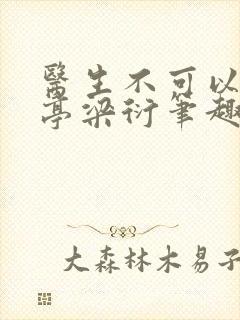 醫生不可以
亭梁衍筆趣
大森林木易子